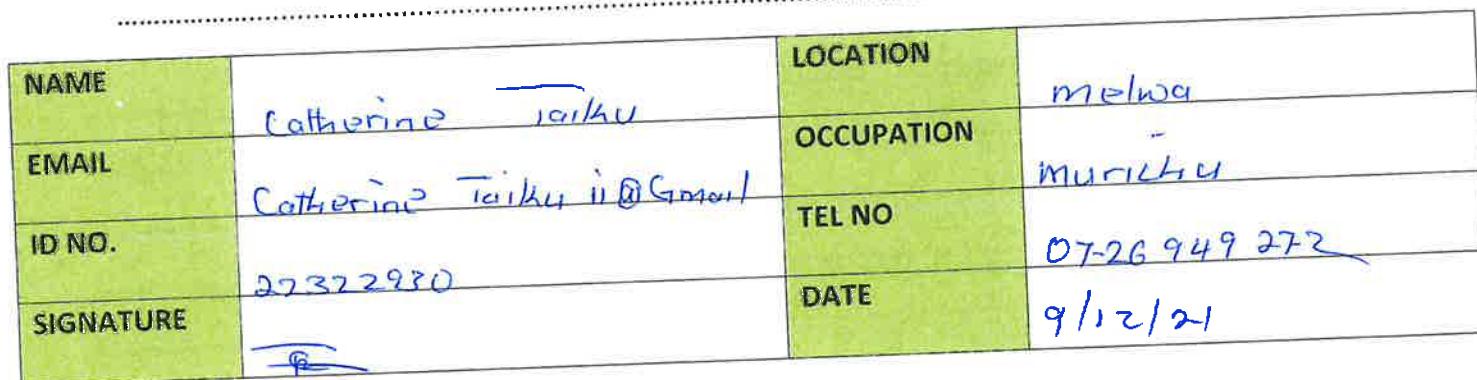 NAME Catherine Taiku LOCATION melwa
EMAIL Catherine Taiku ii@Gmail OCCUPATION murichu
ID NO. 27322930 TEL NO 07-26 949 272
SIGNATURE DATE 9/12/21